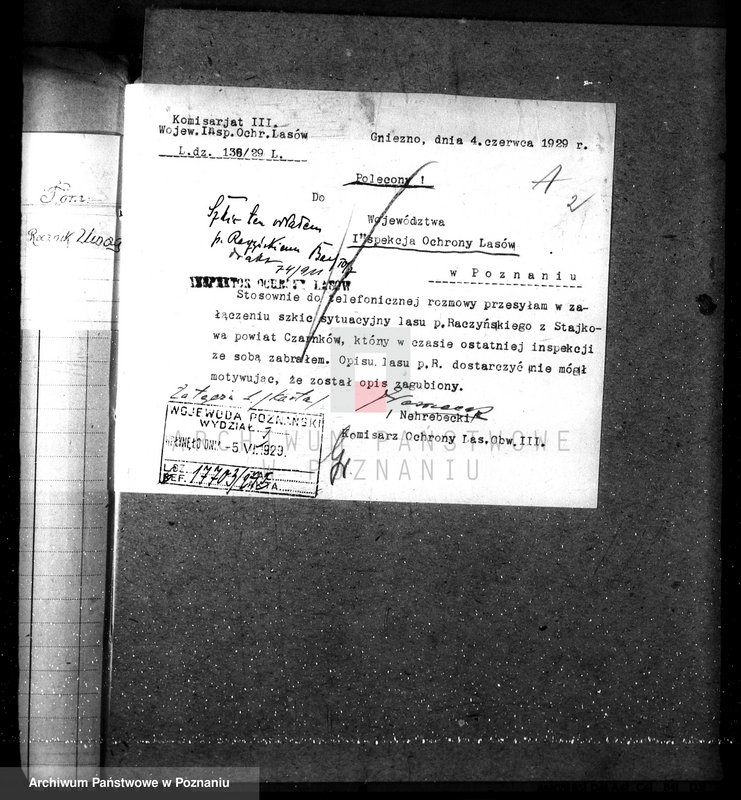 Komisarjat III.
Wojew.Insp.Ochr.Lasów
L.dz. 136/29 L.
Gniezno, dnia 4.czerwca 1929 r.
Polecony !
A
2/
Do
Województwa
Inspekcja Ochrony Lasów
w Poznaniu
Szkic ten
p.
INSPEKTOR OCHRONY LASÓW
Stosownie do telefonicznej rozmowy przesyłam w za-
łączeniu szkic sytuacyjny lasu p.Raczyńskiego z Stajko-
wa powiat Czarnków, który w czasie ostatniej inspekcji
ze sobą zabrałem. Opisu lasu p.R. dostarczyć nie mógł
motywując, że został opis zagubiony.
/ Nehrebecki/
Komisarz Ochrony Las.Obw.III.
WOJEWODA POZNAŃSKI
WYDZIAŁ
WPŁYNĘŁO DNIA -5.VI.1929
L.DZ. 17703/29
REF.
ZAŁ.
Rocznik
ARCHIWUM PAŃSTWOWE
W POZNANIU
Archiwum Państwowe w Poznaniu